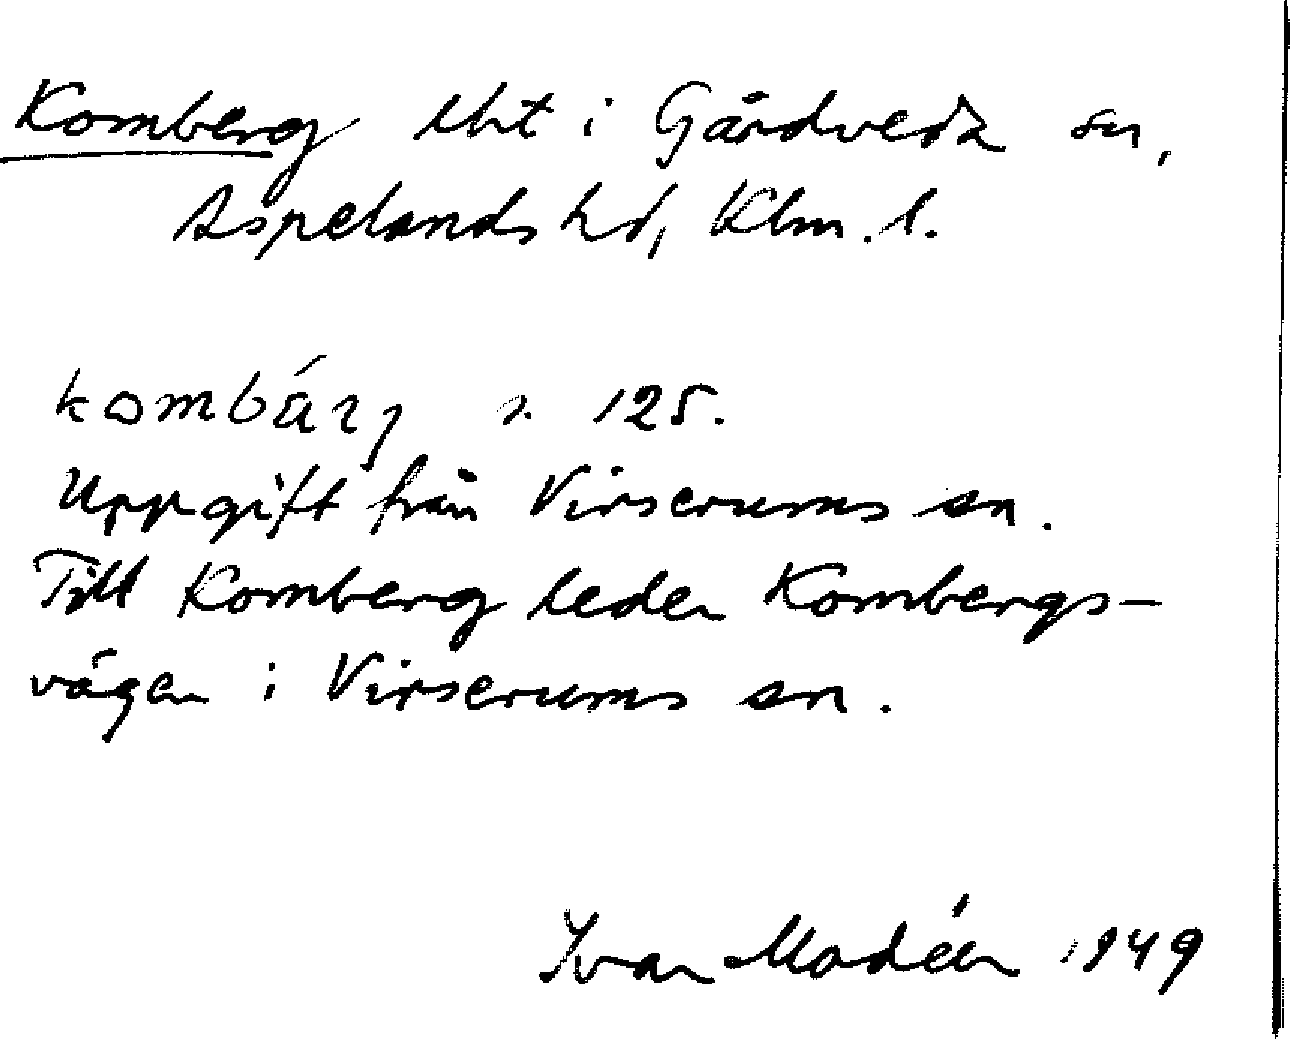 Komberg tht i Gårdveda sn,
Aspelands hd, Klm. l.
kombárj s. 125.
Uppgift från Virserums sn.
Till Komberg leder Kombergs-
vägen i Virserums sn.
Ivar Modéer 1949